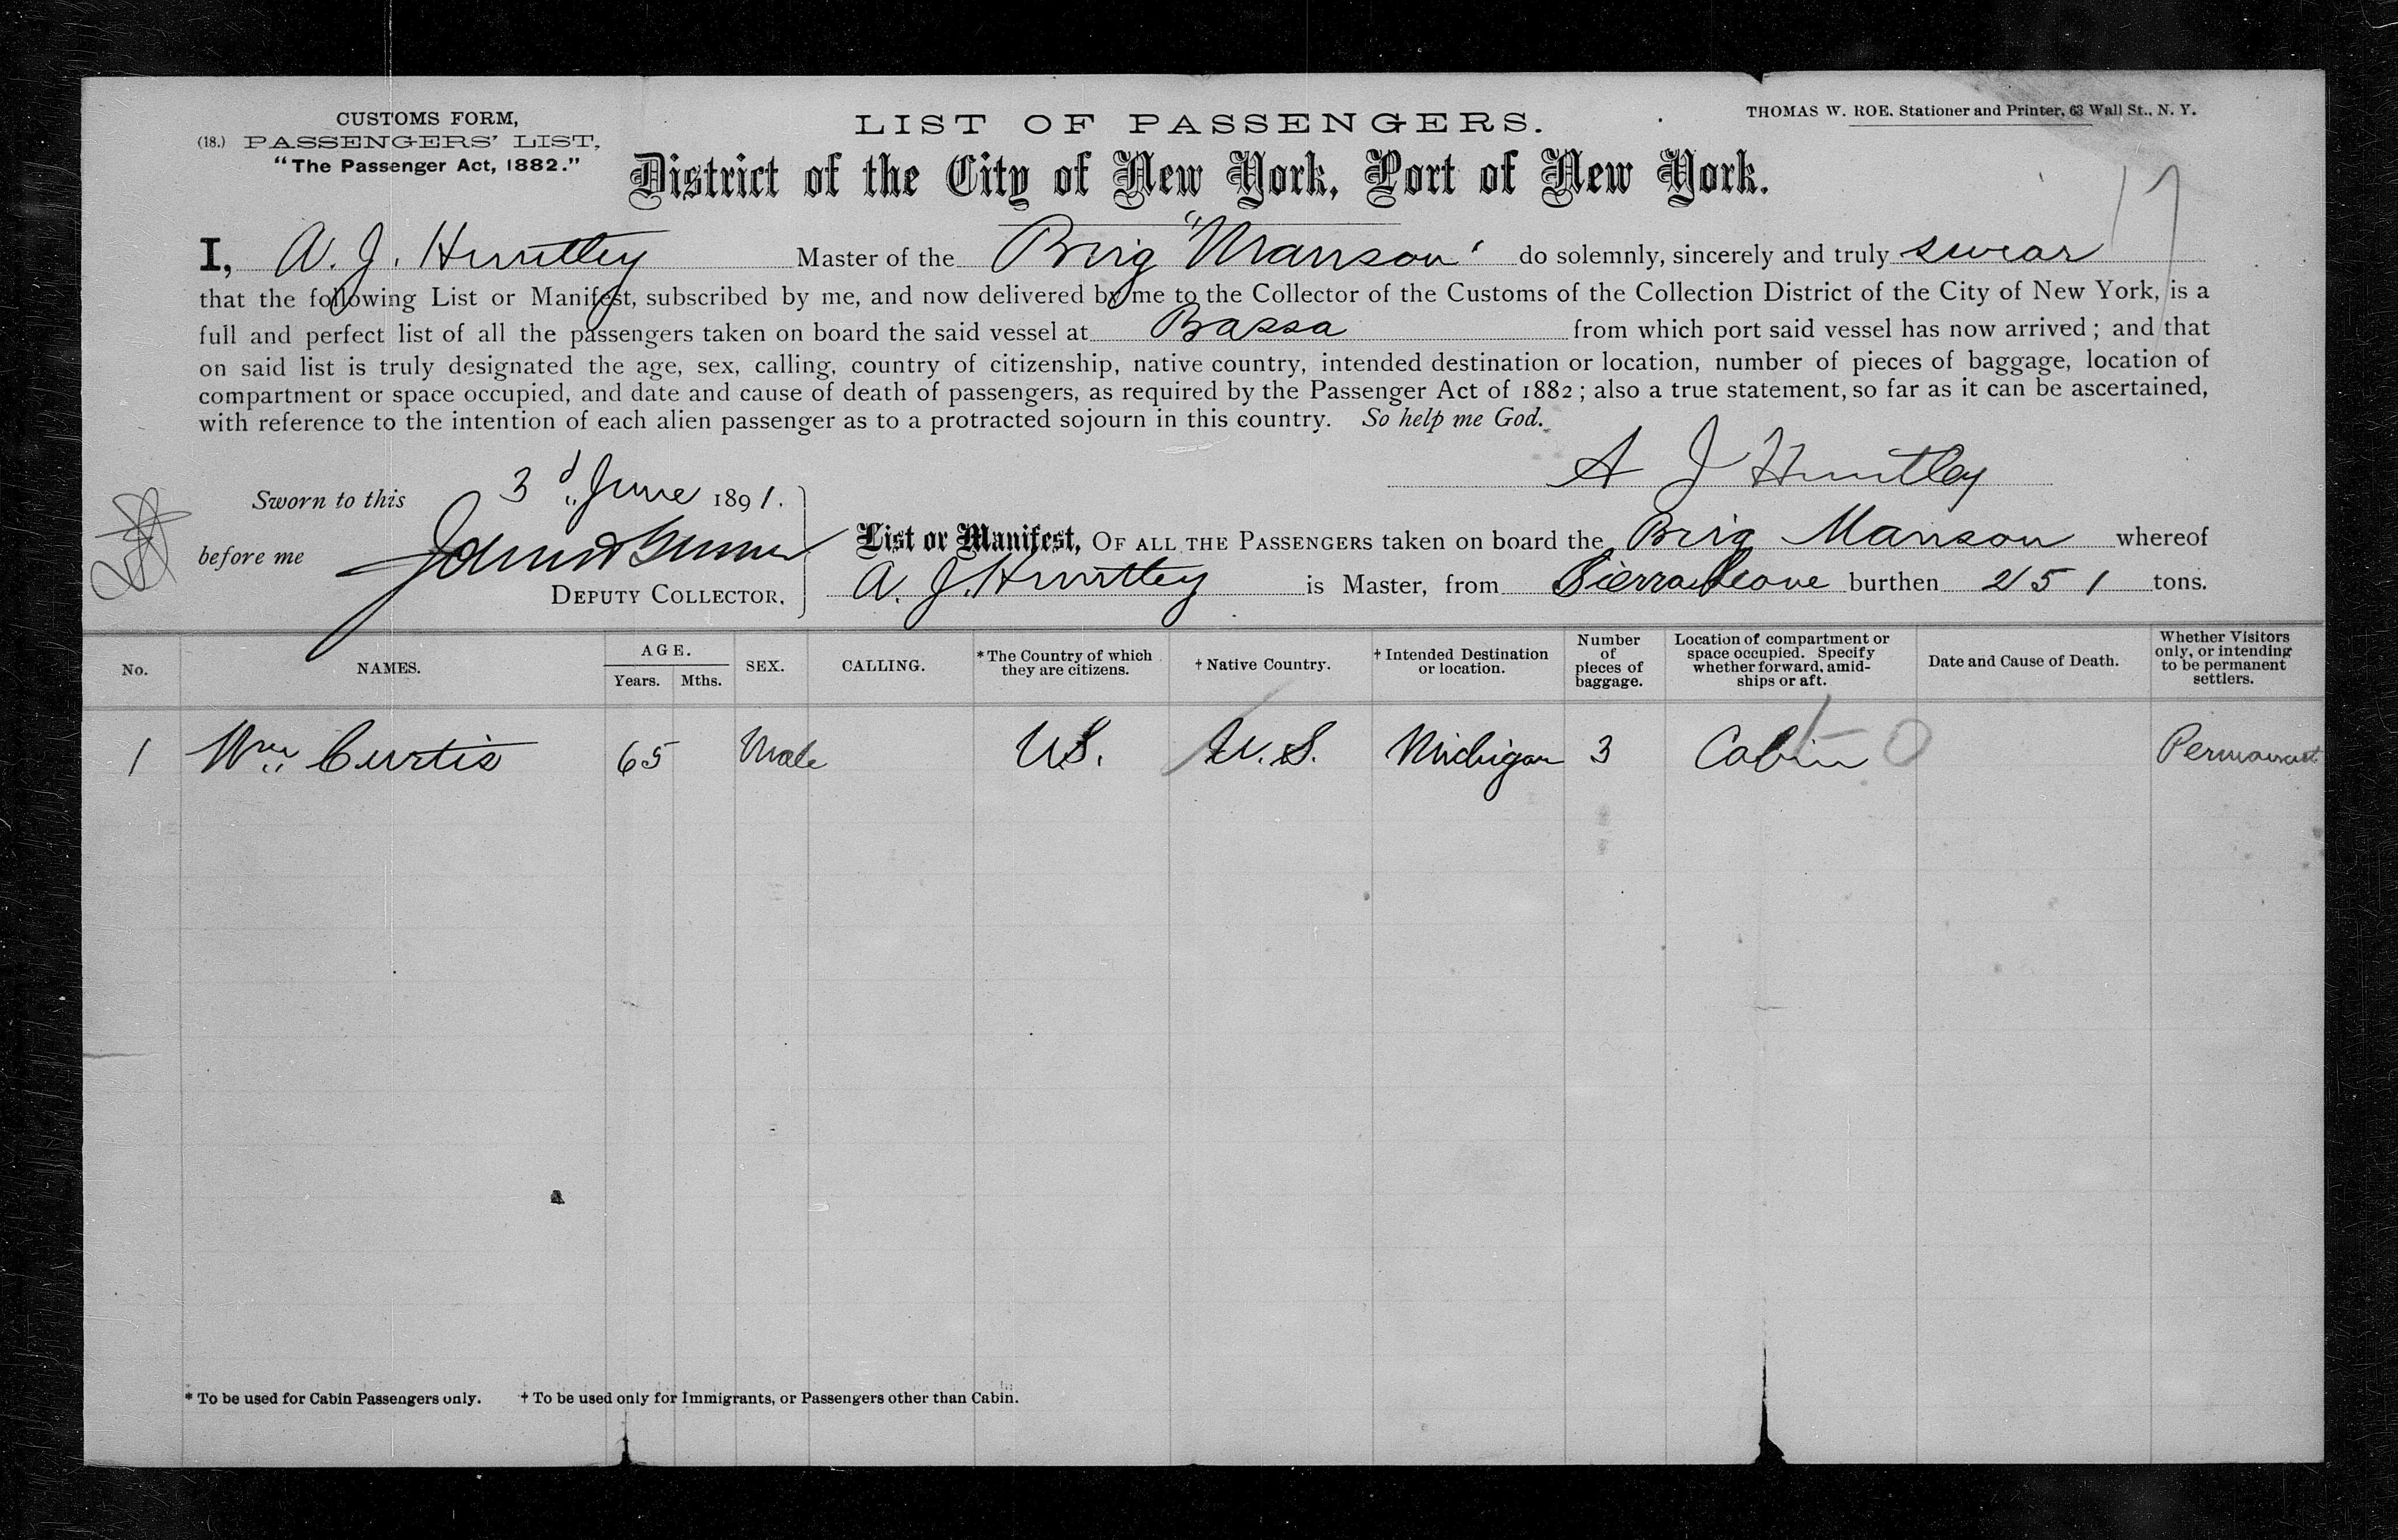 CUSTOMS FORM,
(18.) PASSENGERS' LIST,
"The Passenger Act, 1882."
LIST OF PASSENGERS.
THOMAS W. ROE. Stationer and Printer, 63 Wall St., N. Y.
District of the City of New York, Port of New York.
17
I, A. J. Huntley Master of the Brig "Manson" do solemnly, sincerely and truly swear
that the following List or Manifest, subscribed by me, and now delivered by me to the Collector of the Customs of the Collection District of the City of New York, is a
full and perfect list of all the passengers taken on board the said vessel at Bassa from which port said vessel has now arrived; and that
on said list is truly designated the age, sex, calling, country of citizenship, native country, intended destination or location, number of pieces of baggage, location of
compartment or space occupied, and date and cause of death of passengers, as required by the Passenger Act of 1882; also a true statement, so far as it can be ascertained,
with reference to the intention of each alien passenger as to a protracted sojourn in this country. So help me God.
A J Huntley
Sworn to this 3d June 1891.
before me
DEPUTY COLLECTOR.
List or Manifest, OF ALL THE PASSENGERS taken on board the Brig Manson whereof
A. J. Huntley is Master, from Sierra Leone burthen 251 tons.
No. NAMES. AGE. Years. Mths. SEX. CALLING. *The Country of which they are citizens. †Native Country. †Intended Destination or location. Number of pieces of baggage. Location of compartment or space occupied. Specify whether forward, amid-ships or aft. Date and Cause of Death. Whether Visitors only, or intending to be permanent settlers.
1 Wm Curtis 65 Male U.S. U.S. Michigan 3 Cabin 0 Permanent
* To be used for Cabin Passengers only. † To be used only for Immigrants, or Passengers other than Cabin.